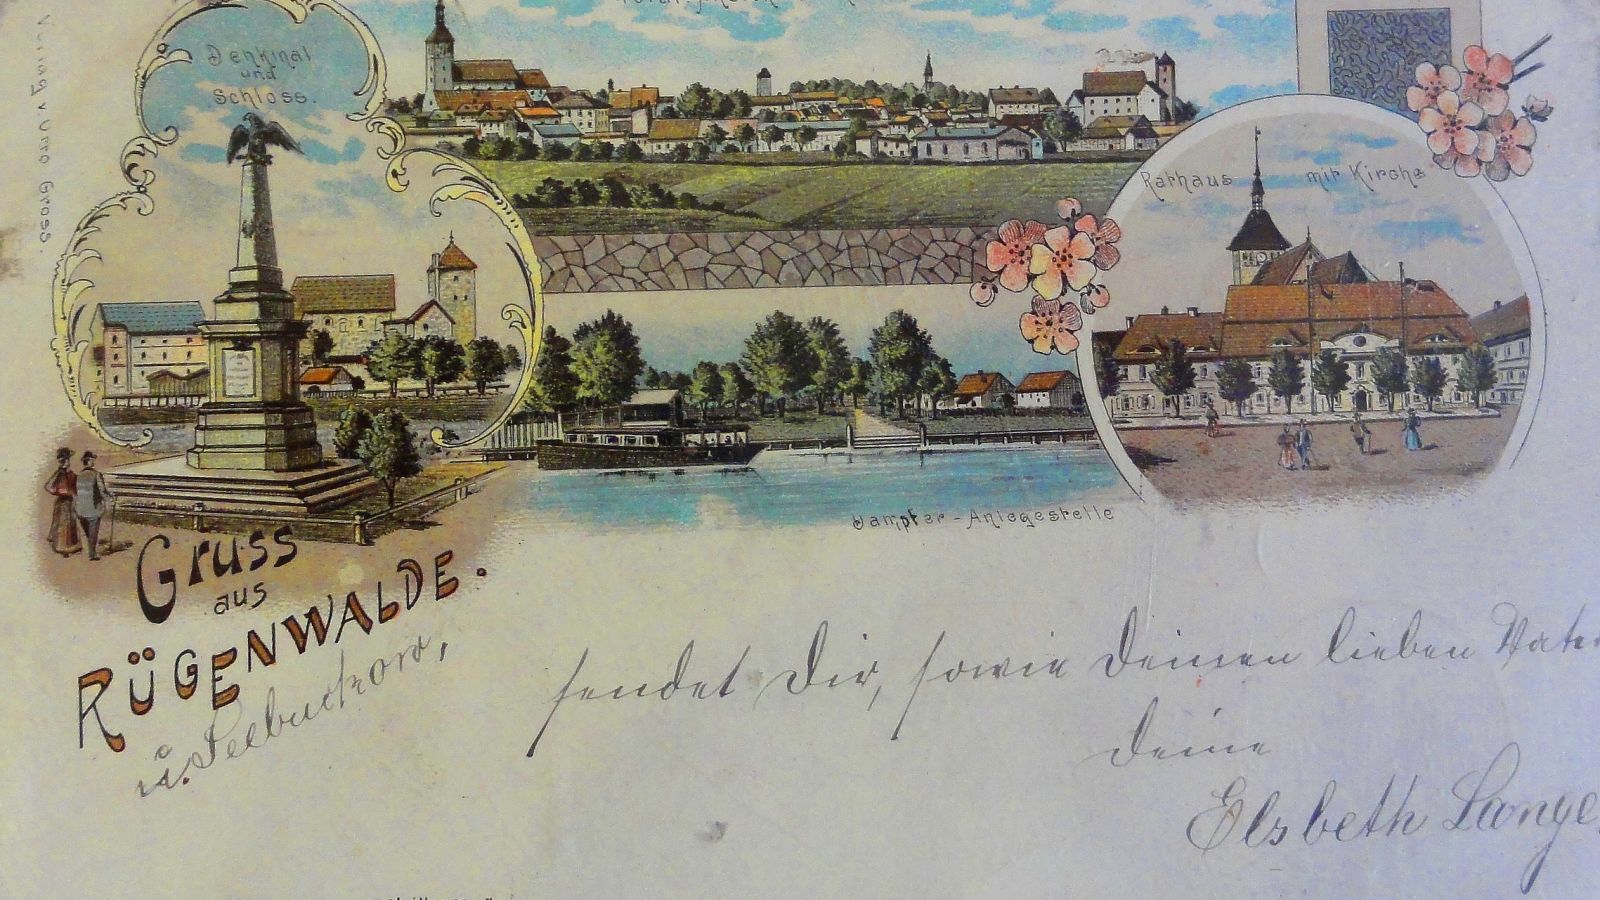 Denkmal
und
Schloss.
Verlag v. Otto Gross.
Rathaus mit Kirche
Dampfer-Anlegestelle
Gruss
aus
RÜGENWALDE.
u. Seebuckow,
sendet Dir, sowie Deinen lieben Vater
Deine
Elsbeth Lange